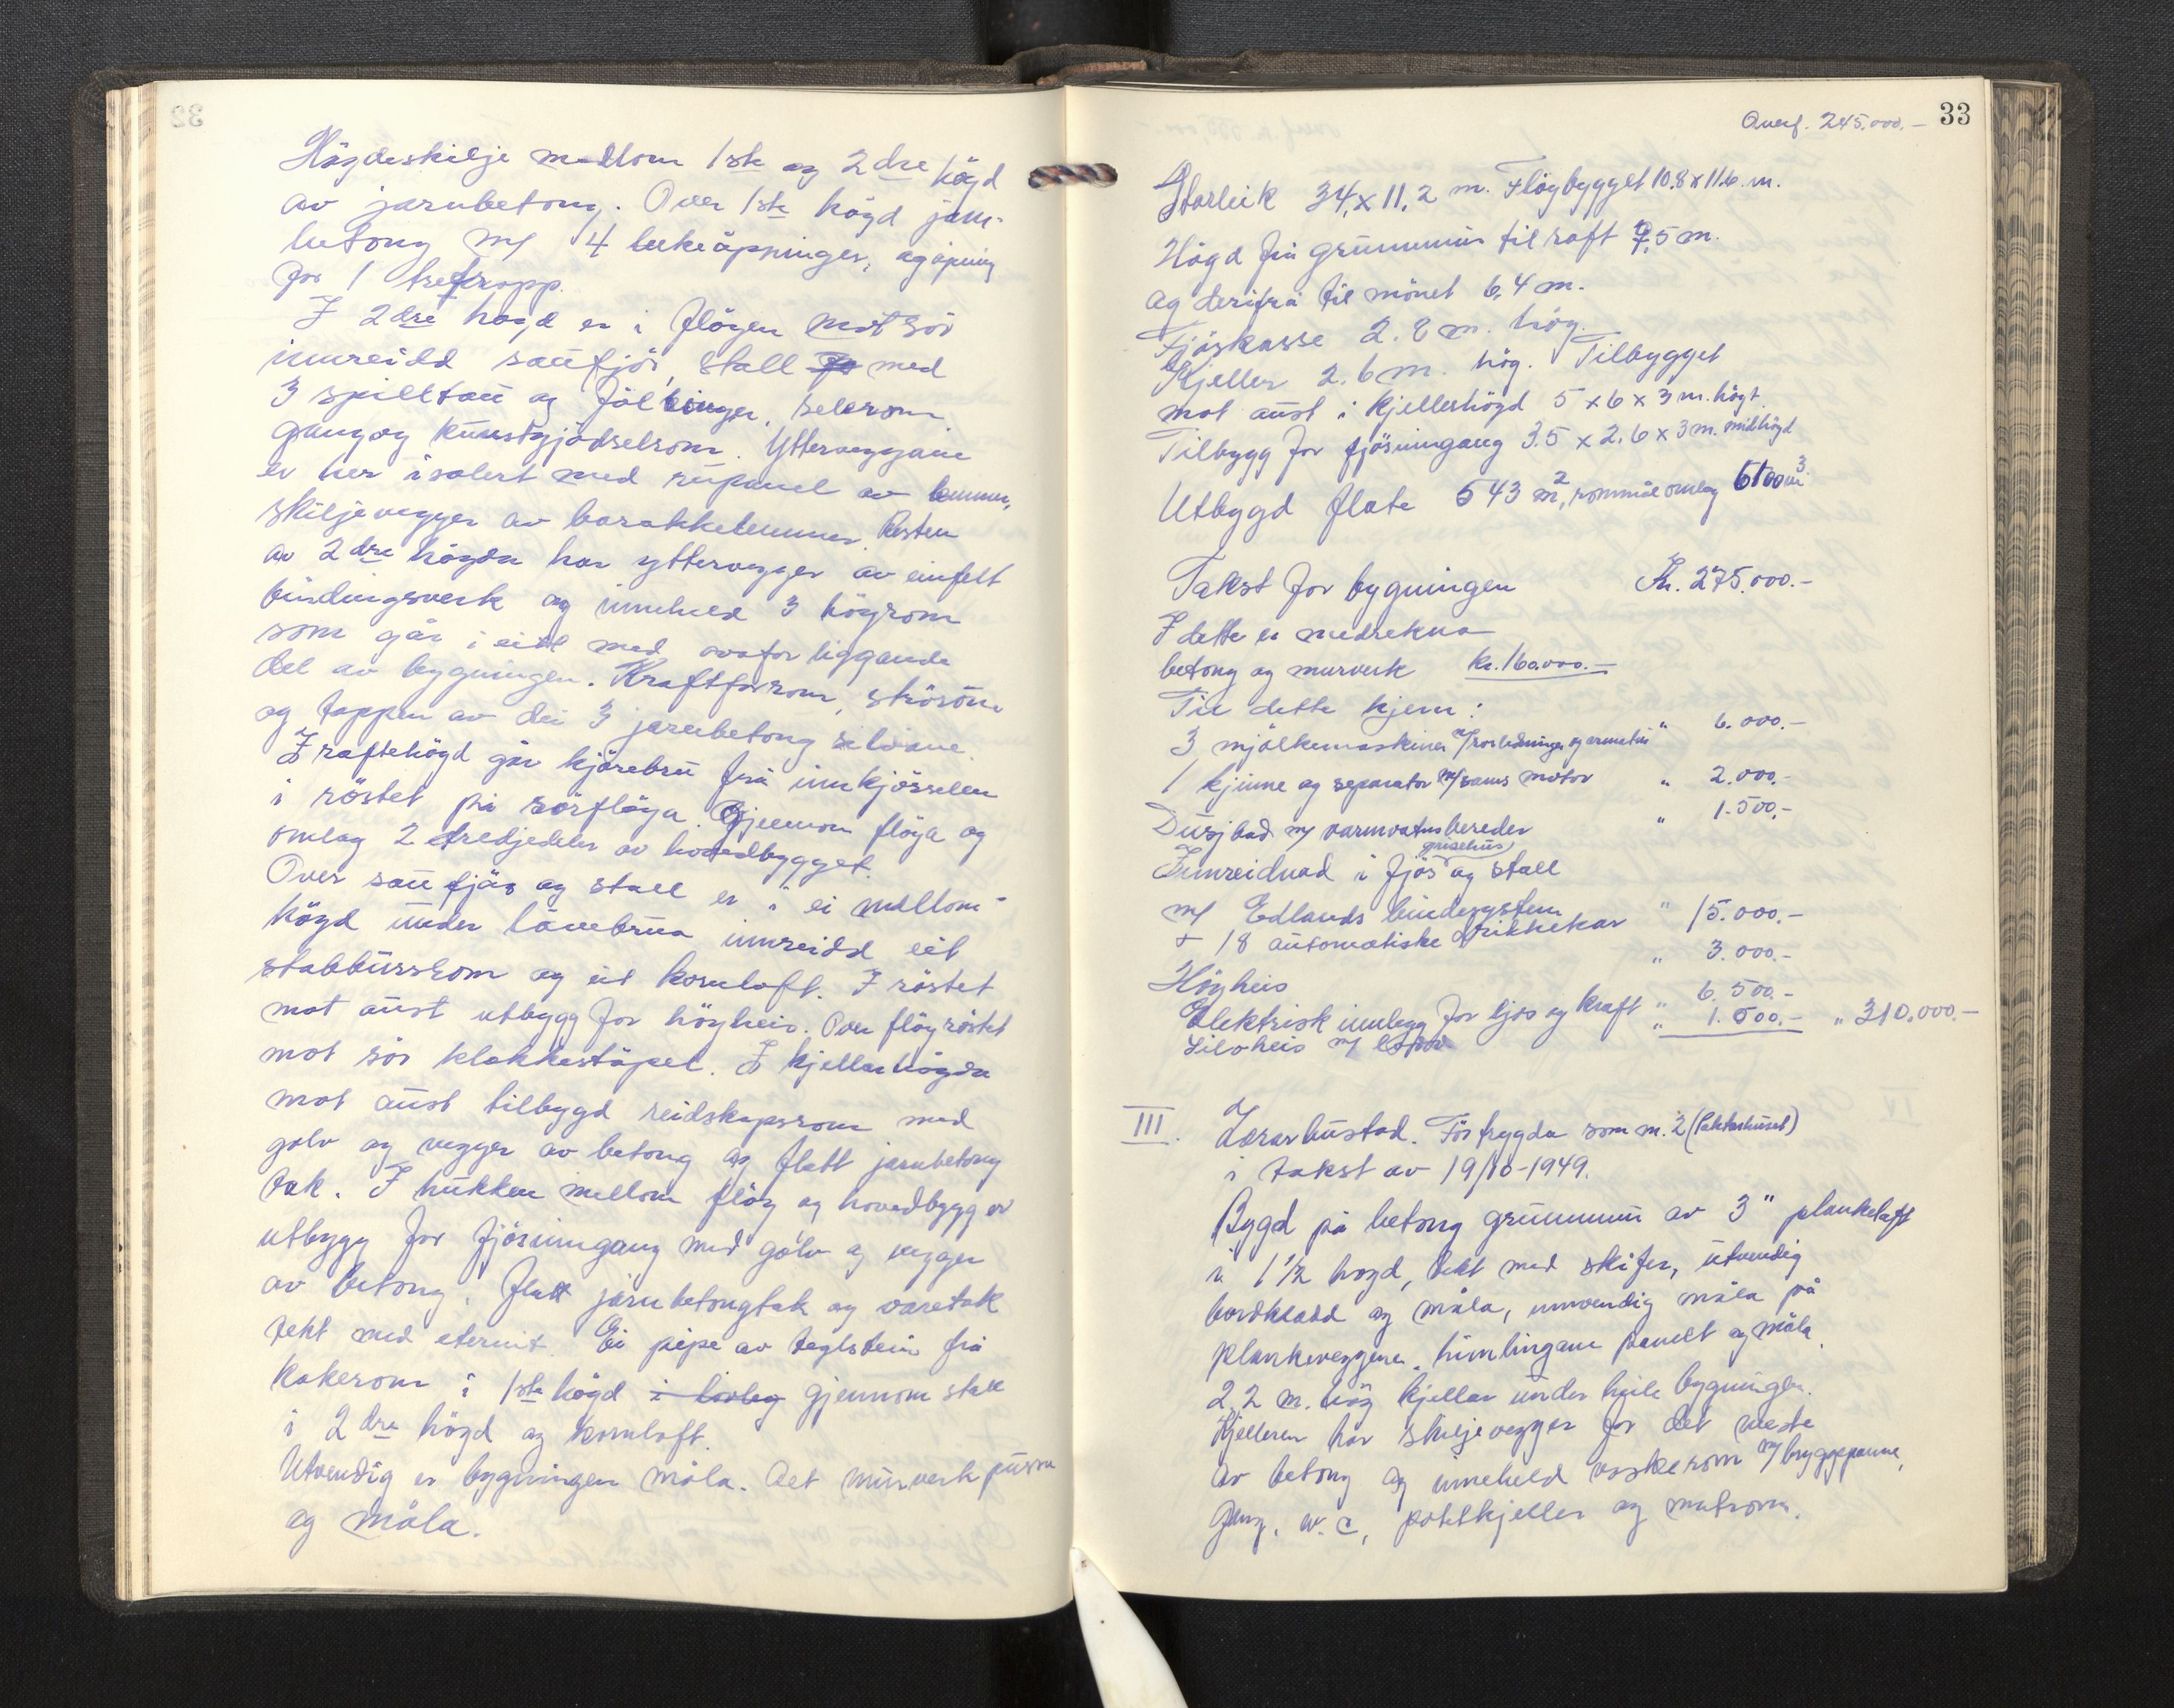 Högdeskilje mellom 1ste og 2dre högd
av jarnbetong. Over 1ste högd jarn-
betong m/ 4 lukeåpninger, og åpning
for 1 trefropp.
I 2dre högd er i flögen mot sör
innreidd saufjös, stall med
3 spilltau og folbinger, selerom
gang og kunstgjödselrom. Ytterveggane
er her isolert med rupanel av lemmer,
skiljevegger av barakkelemmer. Resten
av 2dre högda har yttervegger av einfelt
bindingsverk og inneheld 3 höyrom
som går i eitt med ovafor liggande
del av bygningen. Kraftforrom, strörom
og toppen av dei 3 jarnbetong siloane.
I raftehögd går kjörebru frå innkjörselen
i röstet på sörflöya. Gjennom flöya og
omlag 2 tredjedeler av hovedbygget.
Over saufjös og stall er i ei mellom-
högd under låvebrua innreidd eit
stabbursrom og eit kornloft. I röstet
mot aust utbygg for höyheis. Over flögröstet
mot sör klokkestöpel. I kjellarhögda
mot aust tilbygd reidskapsrom med
golv og vegger av betong og flatt jarnbetong
tak. I hukken mellom flög og hovedbygg er
utbygg for fjösinngang med golv og vegger
av betong. flatt jarnbetongtak og varetak
tekt med eternit. Ei pipe av teglstein frå
kokerom i 1ste högd i gjennom stall
i 2dre högd og kornloft.
Utvendig er bygningen måla. Alt murverk pussa
og måla.
33
Overf. 245.000.-
Storleik 34,x11,2 m. Flögbygget 10.8x11.6.m.
Högd frå grunnmur til raft 7,5 m.
og derifrå til mönet 6,4 m.
Fjöskasse 2.8 m. hög.
Kjeller 2.6 m. hög. Tilbygget
mot aust i kjellerhögd 5 x 6 x 3 m. högt.
Tilbygg for fjösinngang 3.5 x 2.6 x 3 m. midhögd
Utbygd flate 543 m2, rommål omlag 6100 m3.
Takst for bygningen Kr. 275.000.-
I dette er medrekna
betong og murverk kr. 160.000.-
Til dette kjem:
3 mjölkemaskiner m/rorledninger og armatur " 6.000.-
1 kjinne og separator m/sams motor " 2.000.-
Dusjbad m/ varmvatnsbereder " 1.500.-
Innreidnad i fjös grisehus, og stall.
m/ Edlands bindesystem " 15.000.-
+ 18 automatiske drikkekar
Höyheis " 3.000.-
Elektrisk innlegg for ljos og kraft " 6.500.-
Siloheis m/ " 1.500.- " 310.000.-
III. Lærarbustad. För trygda som m. 2 (Pakterhuset)
i takst av 19/10-1949.
Bygd på betong grunnmur av 3" plankelaft
i 1 1/2 högd, tekt med skifer, utvendig
bordkledd og måla, innvendig måla på
plankeveggene. himlingane panelt og måla.
2,2 m. hög kjellar under heile bygningen.
Kjelleren har skiljevegger for det meste
av betong og inneheld vaskerom m/ bryggepanne,
gang. w. c, potetkjeller og matrom.